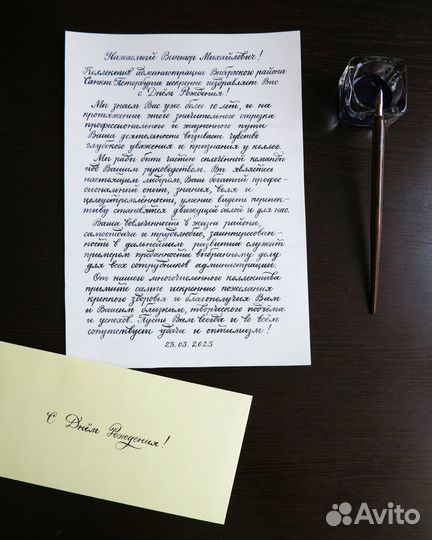 Уважаемый Виктор Михайлович!
Коллектив администрации Выборгского района
Санкт-Петербурга искренне поздравляет Вас
с Днём Рождения!
Мы знаем Вас уже более 10 лет, и на
протяжении этого значительного отрезка
профессионального и жизненного пути
Ваша деятельность вызывает чувство
глубокого уважения и признания у коллег.
Мы рады быть частью сплочённой команды
под Вашим руководством. Вы являетесь
настоящим лидером, Ваш богатый профес-
сиональный опыт, знания, воля и
целеустремлённость, умение видеть перспек-
тиву становятся движущей силой и для нас.
Ваша вовлеченность в жизнь района,
самоотдача и трудолюбие, заинтересован-
ность в дальнейшем развитии служат
примером преданности выбранному делу
для всех сотрудников администрации.
От нашего многочисленного коллектива
примите самые искренние пожелания
крепкого здоровья и благополучия Вам
и Вашим близким, творческого подъёма
и успехов. Пусть Вам всегда и во всём
сопутствует удача и оптимизм!
23.03.2023
С Днём Рождения!
Avito